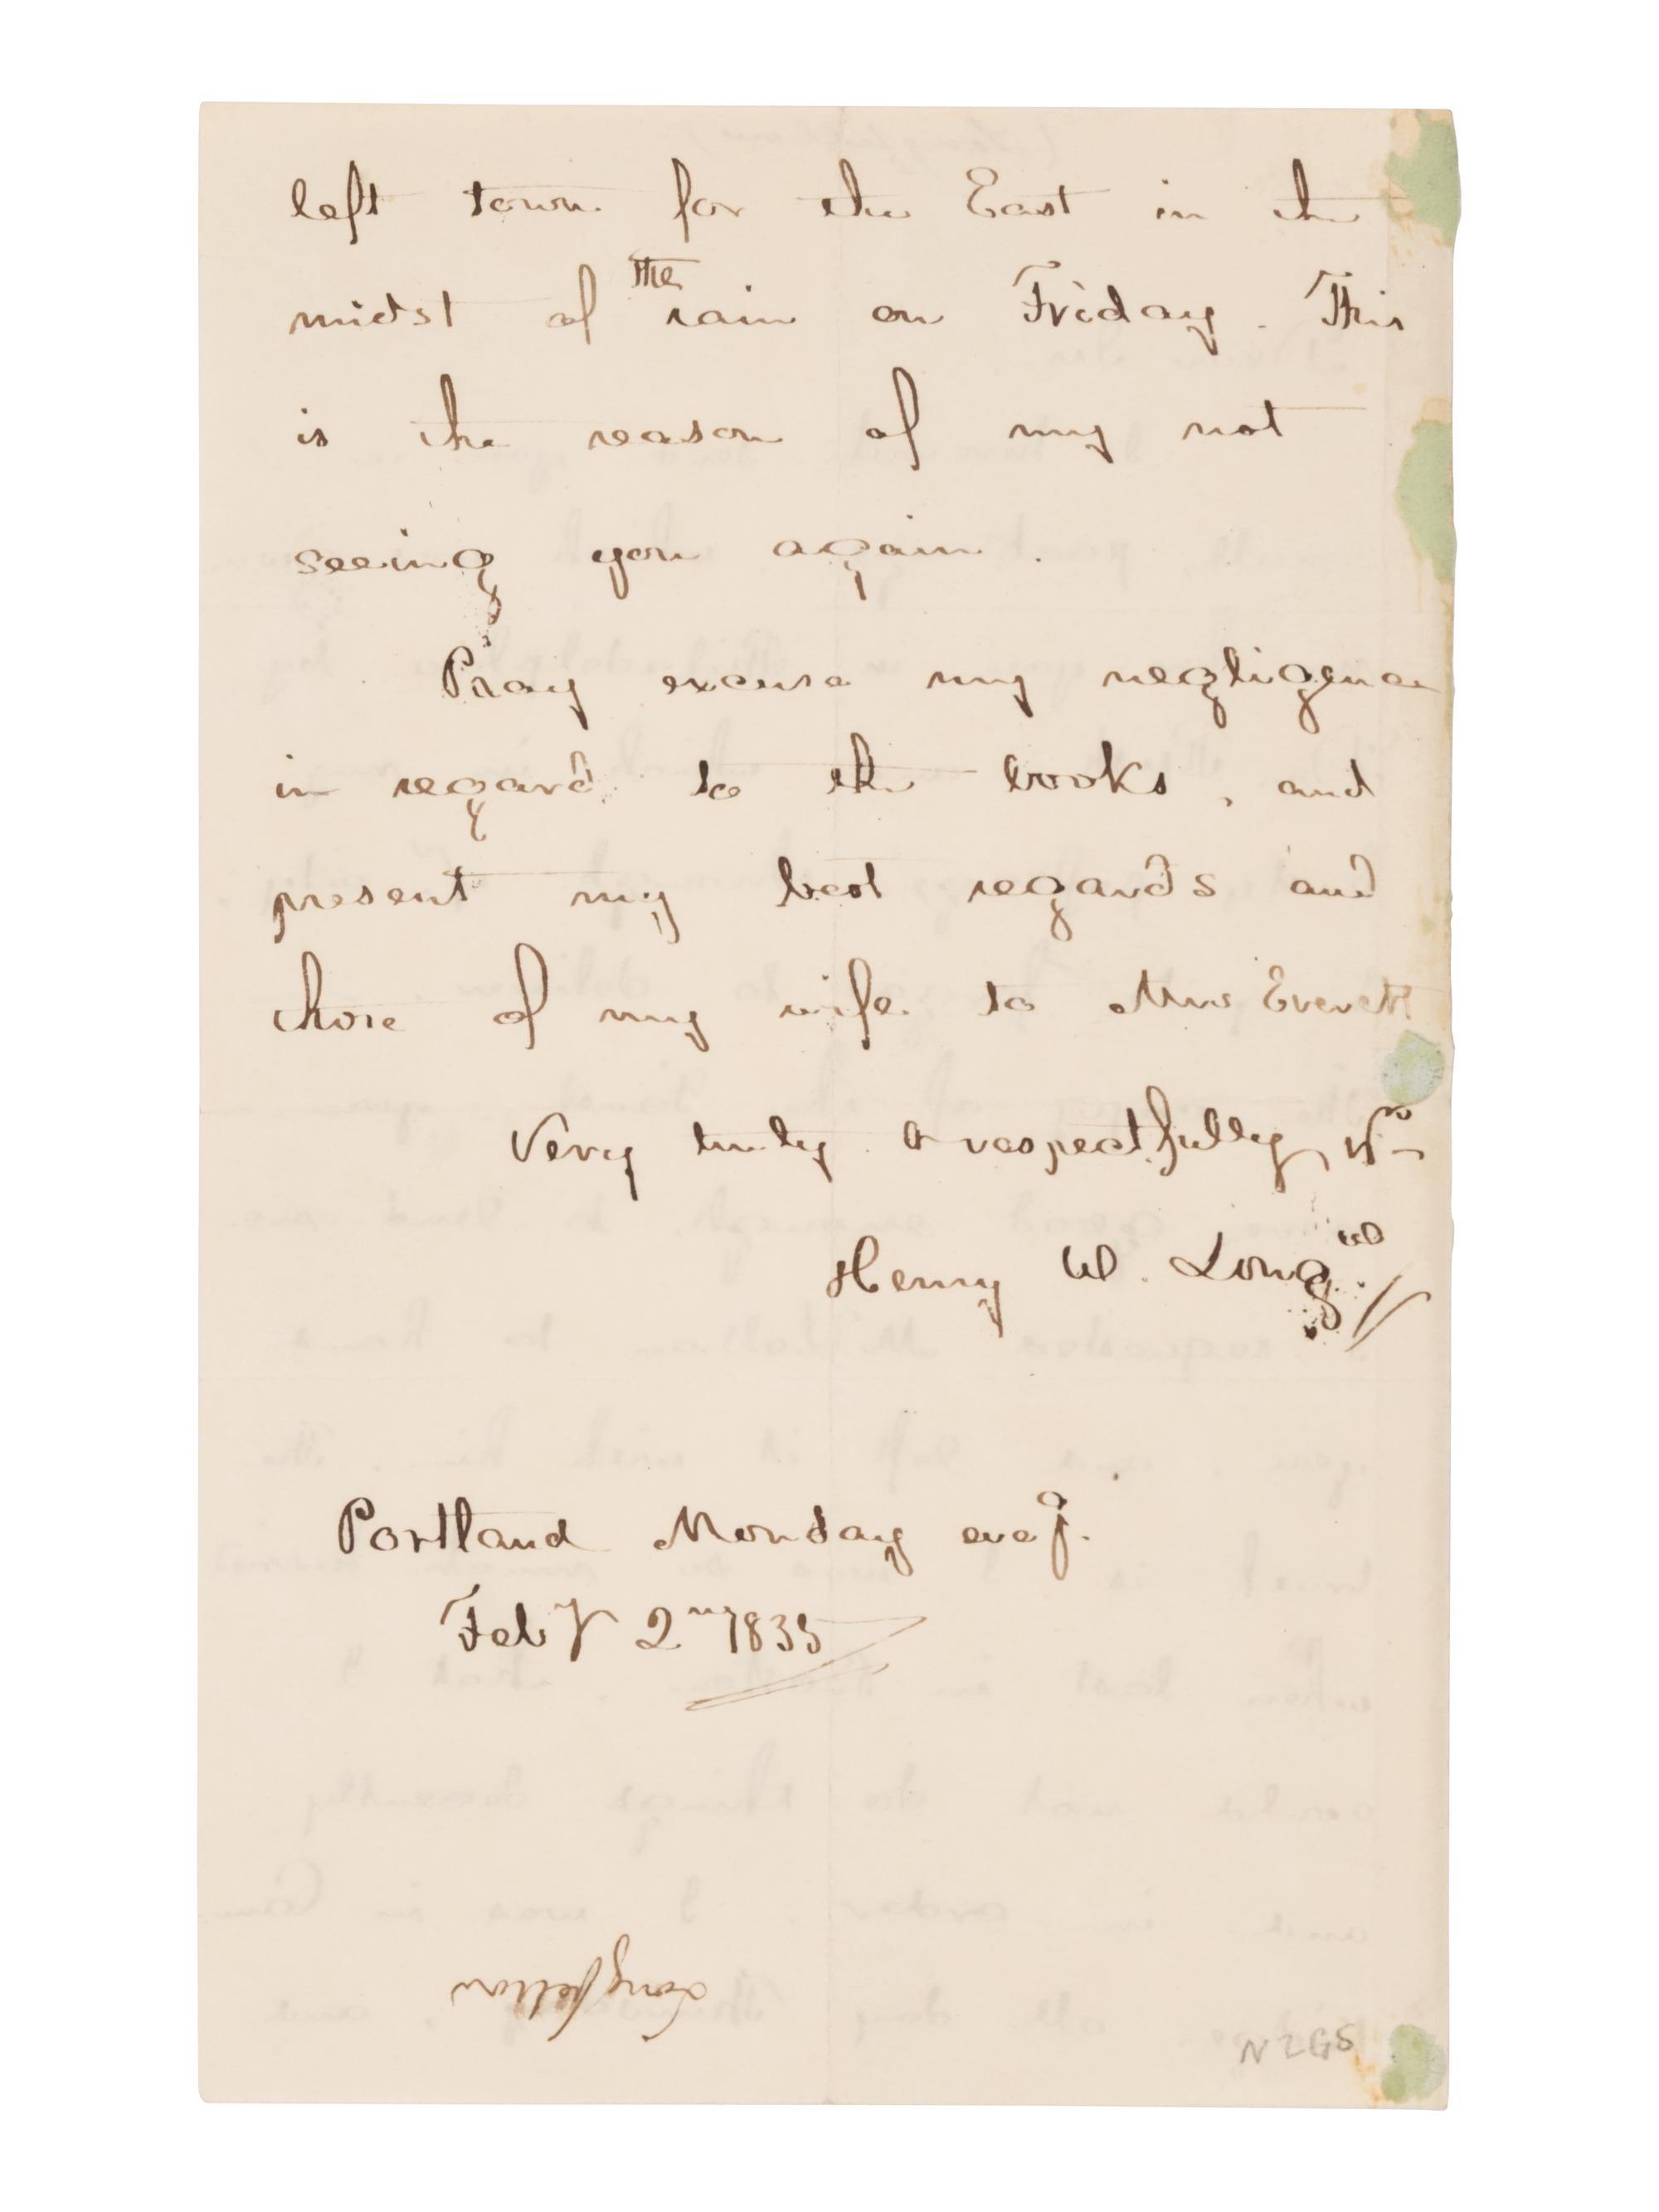 left town for the East in the
midst of the rain on Friday. This
is the reason of my not
seeing you again.
Pray excuse my negligence
in regard to the books, and
present my best regards and
those of my wife to Mrs Everett
Very truly & respectfully, Yrs
Henry W. Longw
Portland Monday eveg.
Feby 2nd 1835
Longfellow
N2GS